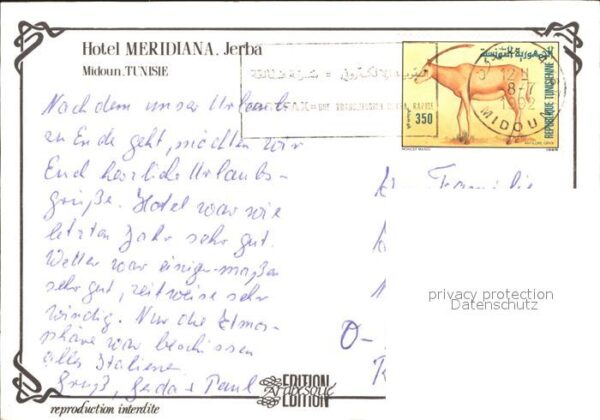 Hotel MERIDIANA. Jerba
Midoun.TUNISIE
الجمهورية التونسية
REPUBLIQUE TUNISIENNE
350
12 H
8-7
1992
MIDOUN
UNE TRANSMISSION RAPIDE
Nachdem unser Urlaub
zu Ende geht, möchten wir
Euch herzliche Urlaubs-
grüße. Hotel war wie
letzten Jahr sehr gut.
Wetter war einiger-maßen
sehr gut, zeitweise sehr
windig. Nur die Atmos-
phäre war beschissen
alles Italiener
Gruß, Gerda + Paul
Familie
O-
privacy protection
Datenschutz
EDITION
EDITION
reproduction interdite